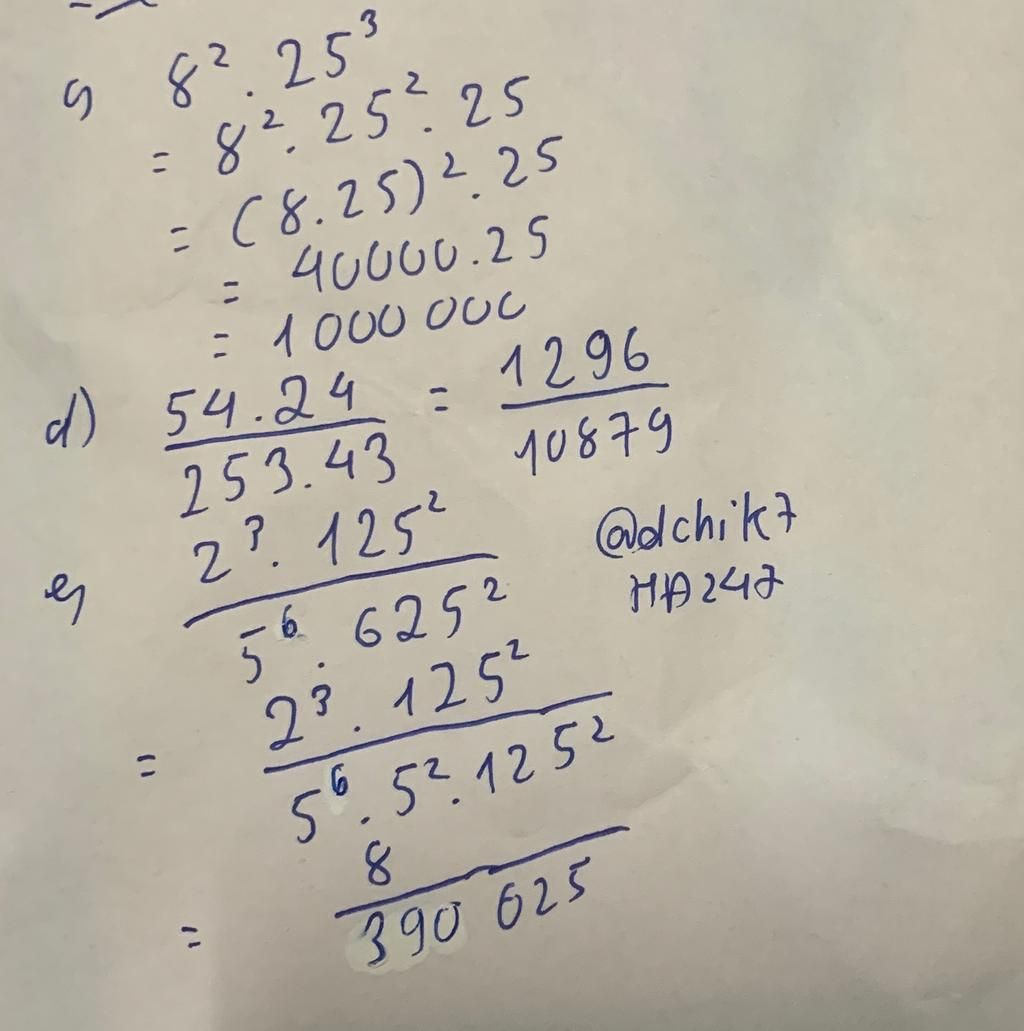 c) 8² . 25³
= 8² . 25² . 25
= (8.25)² . 25
= 40000.25
= 1000 000
d) 54.24 / 253.43 = 1296 / 10879
e) 2³ . 125² / 5⁶ . 625²
@dchik7
HA247
= 2³ . 125² / 5⁶ . 5² . 125²
= 8 / 390 625